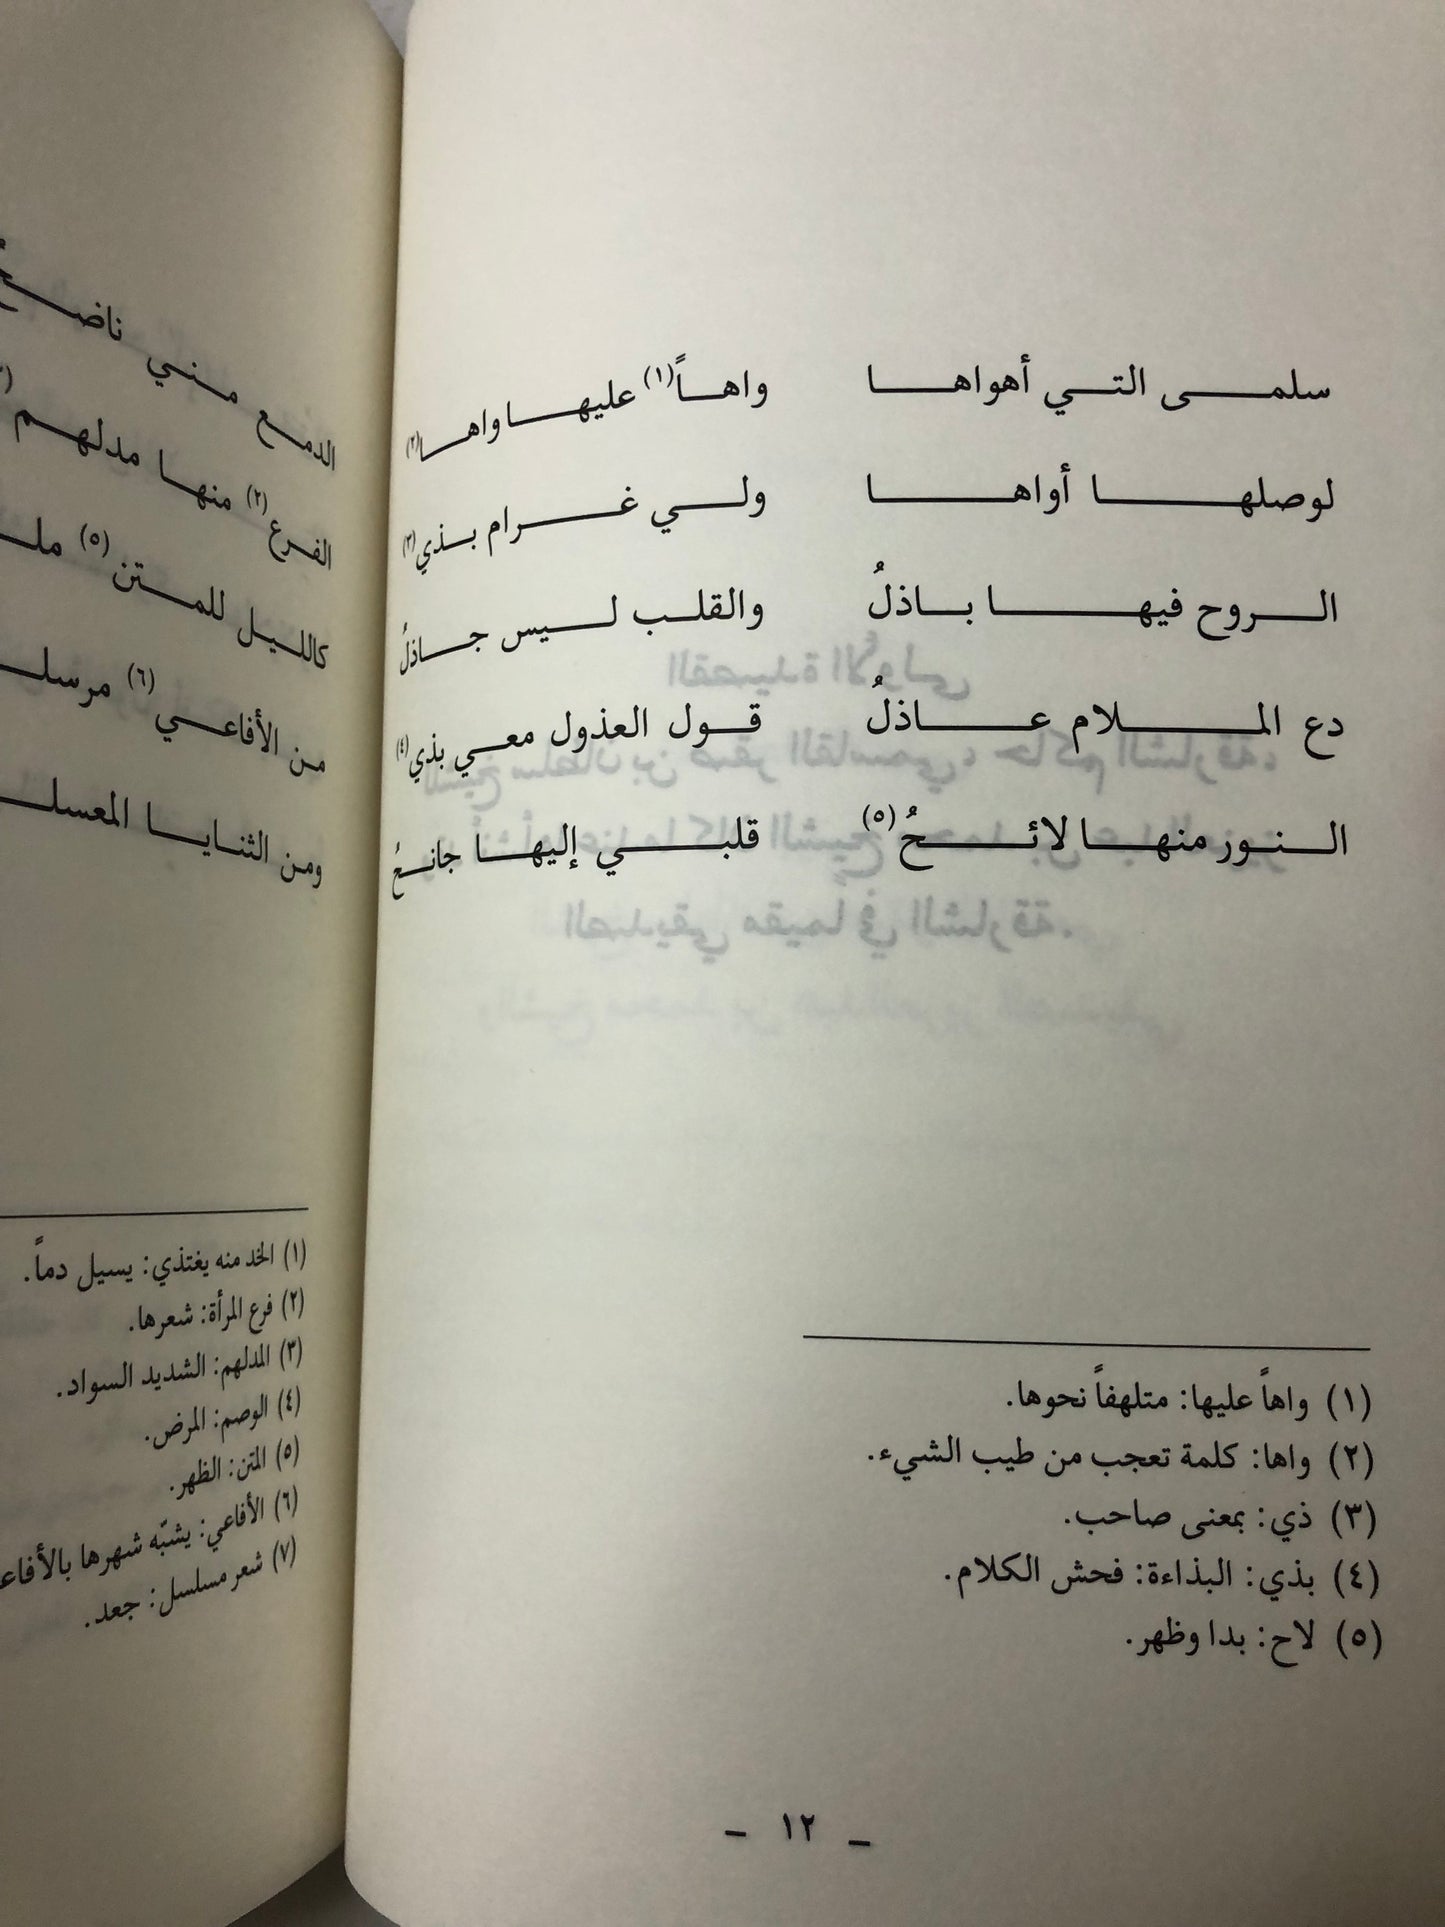 سلمى التي أهواها واهاً(١) عليها واها(٢)
لوصلها أواها ولي غرام بذي(٣)
الروح فيها باذلُ والقلب ليس جاذلُ
دع الملام عاذلُ قول العذول معي بذي(٤)
النور منها لائحُ(٥) قلبي إليها جانحُ
(١) واهاً عليها: متلهفاً نحوها.
(٢) واها: كلمة تعجب من طيب الشيء.
(٣) ذي: بمعنى صاحب.
(٤) بذي: البذاءة: فحش الكلام.
(٥) لاح: بدا وظهر.
- ١٢ -
الدمع مني ناضح
الفرع(٢) منها مدلهم
كالليل للمتن(٥)
من الأفاعي(٦)
ومن الثنايا
(١) الخد منه يغتذي: يسيل دماً.
(٢) فرع المرأة: شعرها.
(٣) المدلهم: الشديد السواد.
(٤) الوصم: المرض.
(٥) المتن: الظهر.
(٦) الأفاعي: يشبّه شهرها
(٧) شعر مسلسل: جعد.
القصيدة الأولى
للشيخ سلطان بن صقر القاسمي، حاكم الشارقة،
الصديقي مقيما في الشارقة.